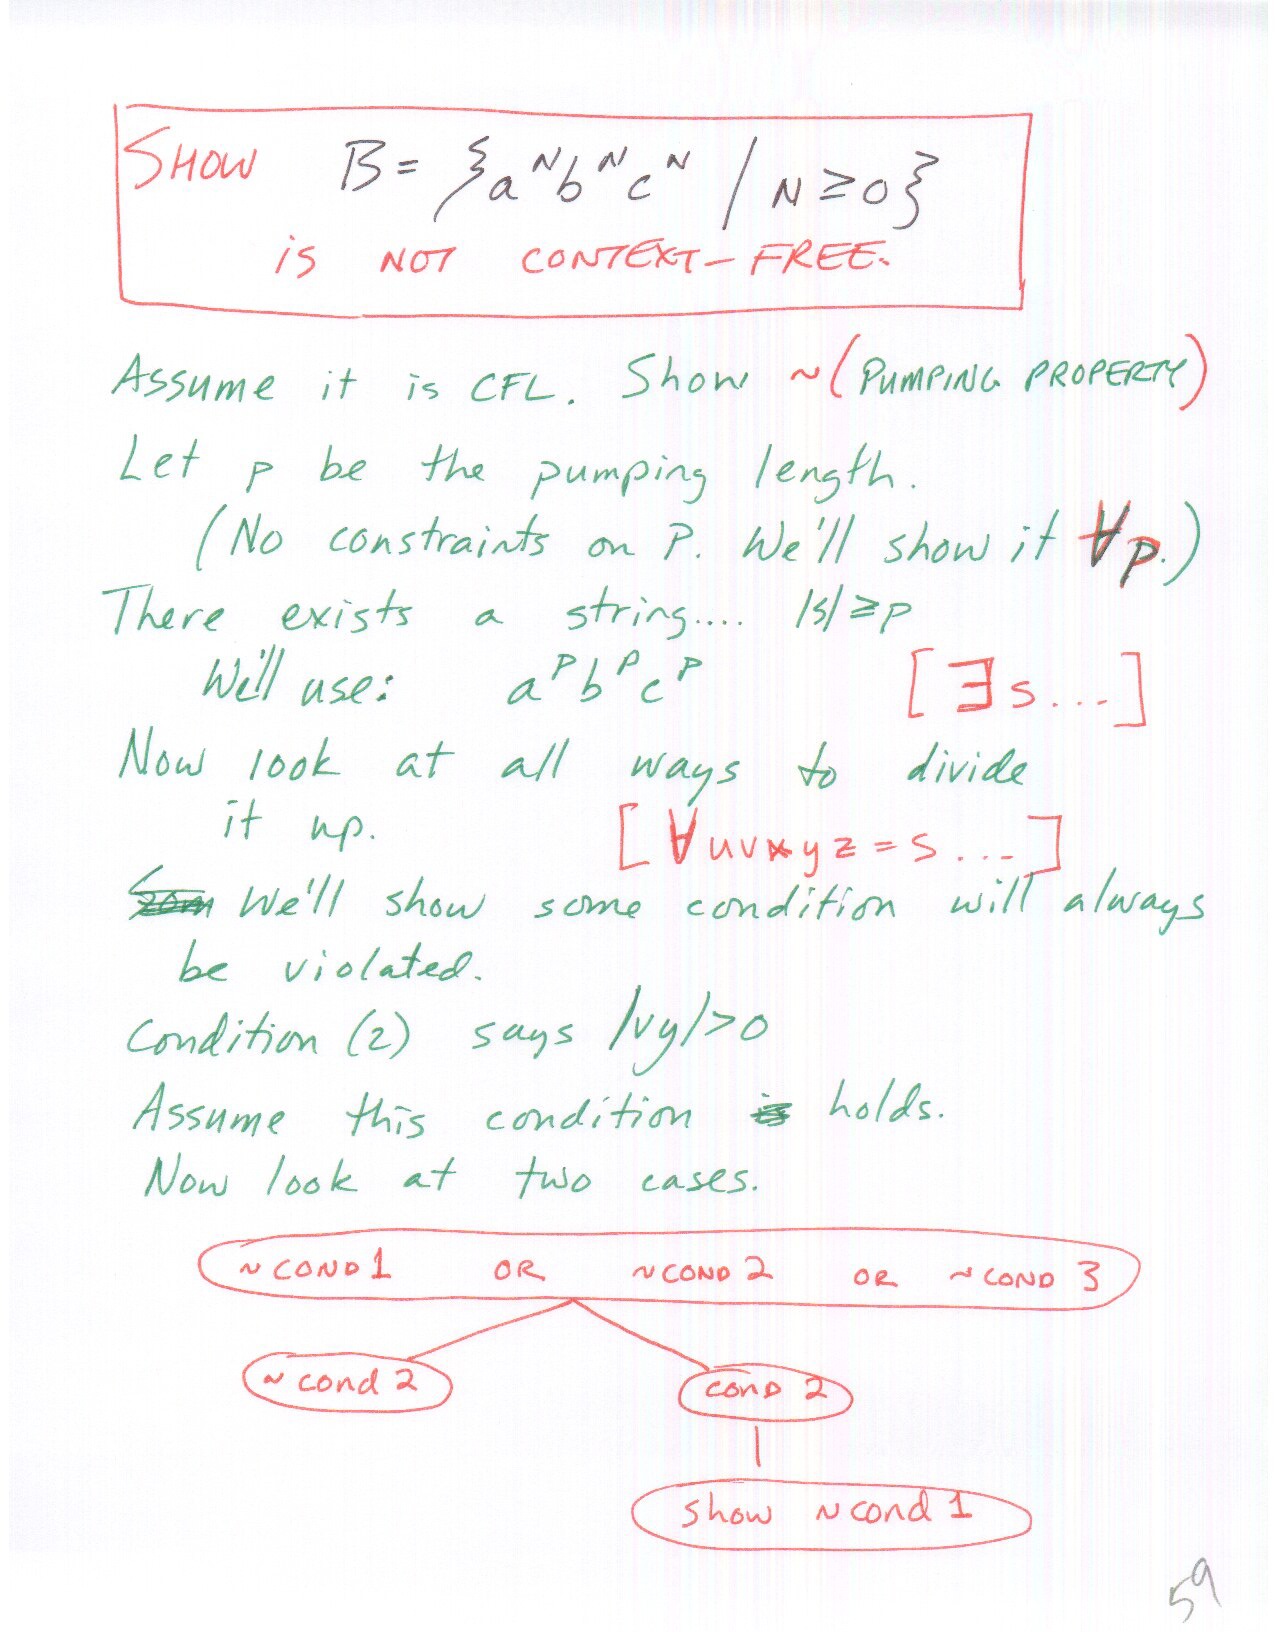 SHOW B = {aᴺbᴺcᴺ | N ≥ 0}
is NOT CONTEXT-FREE.
Assume it is CFL. Show ~(PUMPING PROPERTY)
Let p be the pumping length.
(No constraints on P. We'll show it ∀p.)
There exists a string.... |s| ≥ p
We'll use: aᵖbᵖcᵖ [∃s...]
Now look at all ways to divide
it up. [∀uvxyz = s...]
We'll show some condition will always
be violated.
Condition (2) says |vy| > 0
Assume this condition holds.
Now look at two cases.
~COND 1 OR ~COND 2 OR ~COND 3
~cond 2 COND 2
show ~cond 1
59